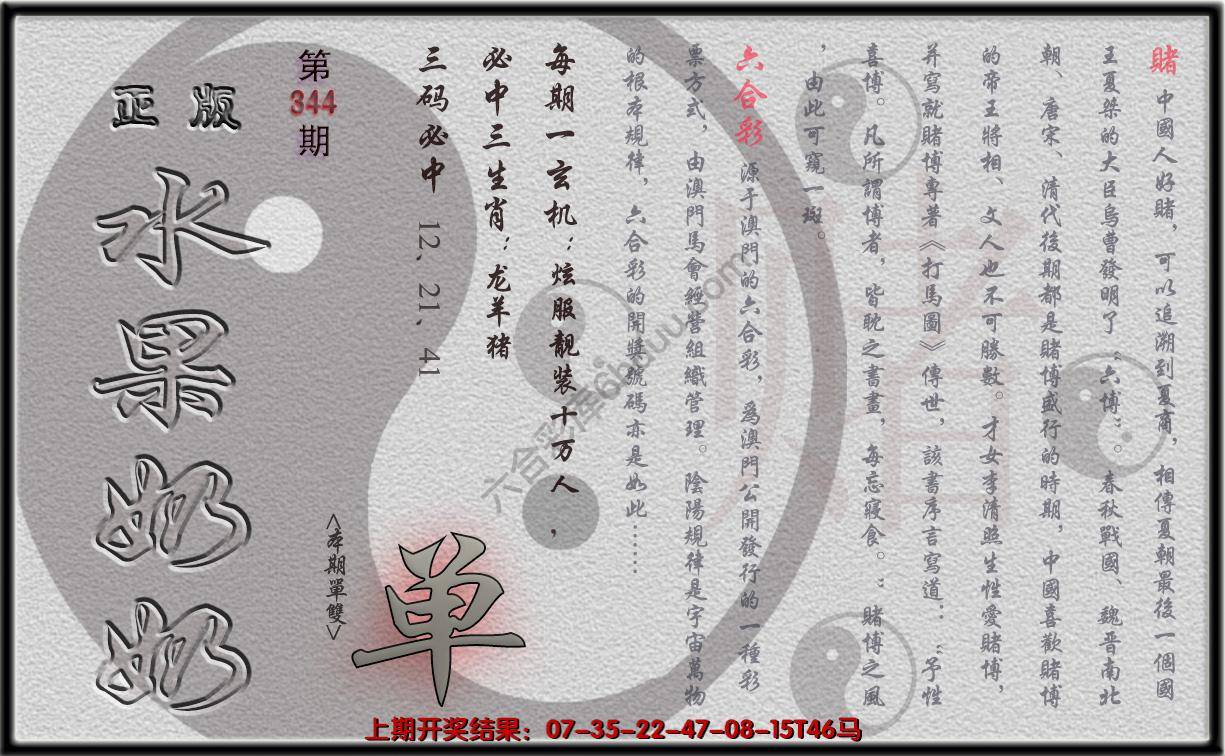 賭 中國人好賭，可以追溯到夏商，相傳夏朝最後一個國
王夏桀的大臣烏曹發明了“六博”。春秋戰國、魏晋南北
朝、唐宋、清代後期都是賭博盛行的時期，中國喜歡賭博
的帝王將相、文人也不可勝數。才女李清照生性愛賭博，
并寫就賭博專著《打馬圖》傳世，該書序言寫道：“予性
喜博。凡所謂博者，皆耽之書畫，每忘寢食。”賭博之風
，由此可窺一斑。
六合彩 源于澳門的六合彩，爲澳門公開發行的一種彩
票方式，由澳門馬會經營組織管理。陰陽規律是宇宙萬物
的根本規律，六合彩的開獎號碼亦是如此……
每期一玄机：炫服靓装十万人，
必中三生肖：龙羊猪
三码必中 12、21、41
第
344
期
正版
水果奶奶
<本期單雙>
单
赌
六合彩库6huuu.com
上期开奖结果：07-35-22-47-08-15T46马